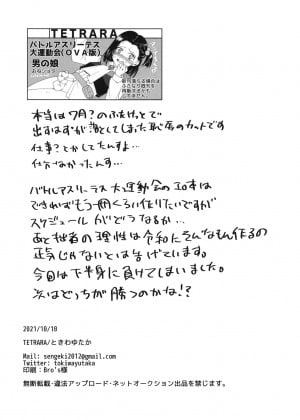 TETRARA
バトルアスリーテス
大運動会(OVA版)
男の娘
本当は7月?のふたけっとで
出すはずが落としてしまった恥辱のカットです
仕事?とかしてたんすよ…
仕方なかったんす…
バトルアスリーテス大運動会のエロ本は
できればもう一冊くらい作りたいですが
スケジュールがどうなるか…
あと拙者の理性は令和にそんなもん作るの
正気じゃないとは告げています。
今回は下半身に負けてしまいました。
次はどっちが勝つのかな!?
2021/10/18
TETRARA/ときわゆたか
Mail: sengeki2012@gmail.com
Twitter: tokiwayutaka
印刷:Bro's様
無断転載・違法アップロード・ネットオークション出品を禁じます。